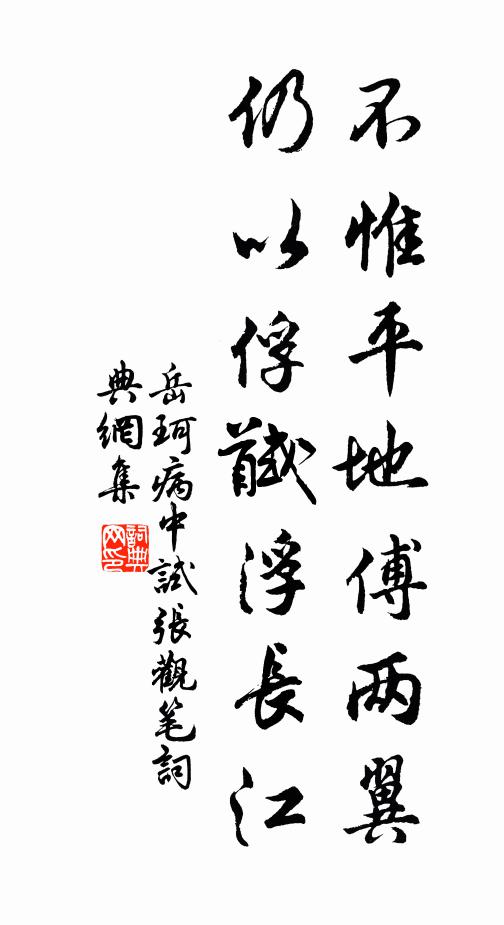 不惟平地傅两翼
仍以俘馘浮長江
岳珂病中試張觀笔詞
典網集
詞典
网印